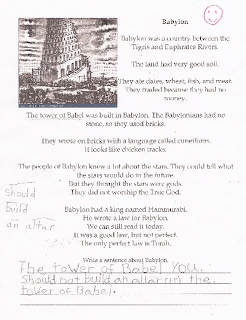 Babylon
Babylon was a country between the
Tigris and Euphrates Rivers.
The land had very good soil.
They ate dates, wheat, fish, and meat.
They traded because they had no
money.
The tower of Babel was built in Babylon. The Babylonians had no
stone, so they used bricks.
They wrote on bricks with a language called cuneiform.
It looks like chicken tracks.
The people of Babylon knew a lot about the stars. They could tell what
the stars would do in the future.
But they thought the stars were gods.
They did not worship the True God.
should
build
an altar
Babylon had a king named Hammurabi.
He wrote a law for Babylon.
We can still read it today.
It was a good law, but not perfect.
The only perfect law is Torah.
Write a sentence about Babylon.
The tower of Babel YOU.
Should not build an altar in the
tower of Babel.